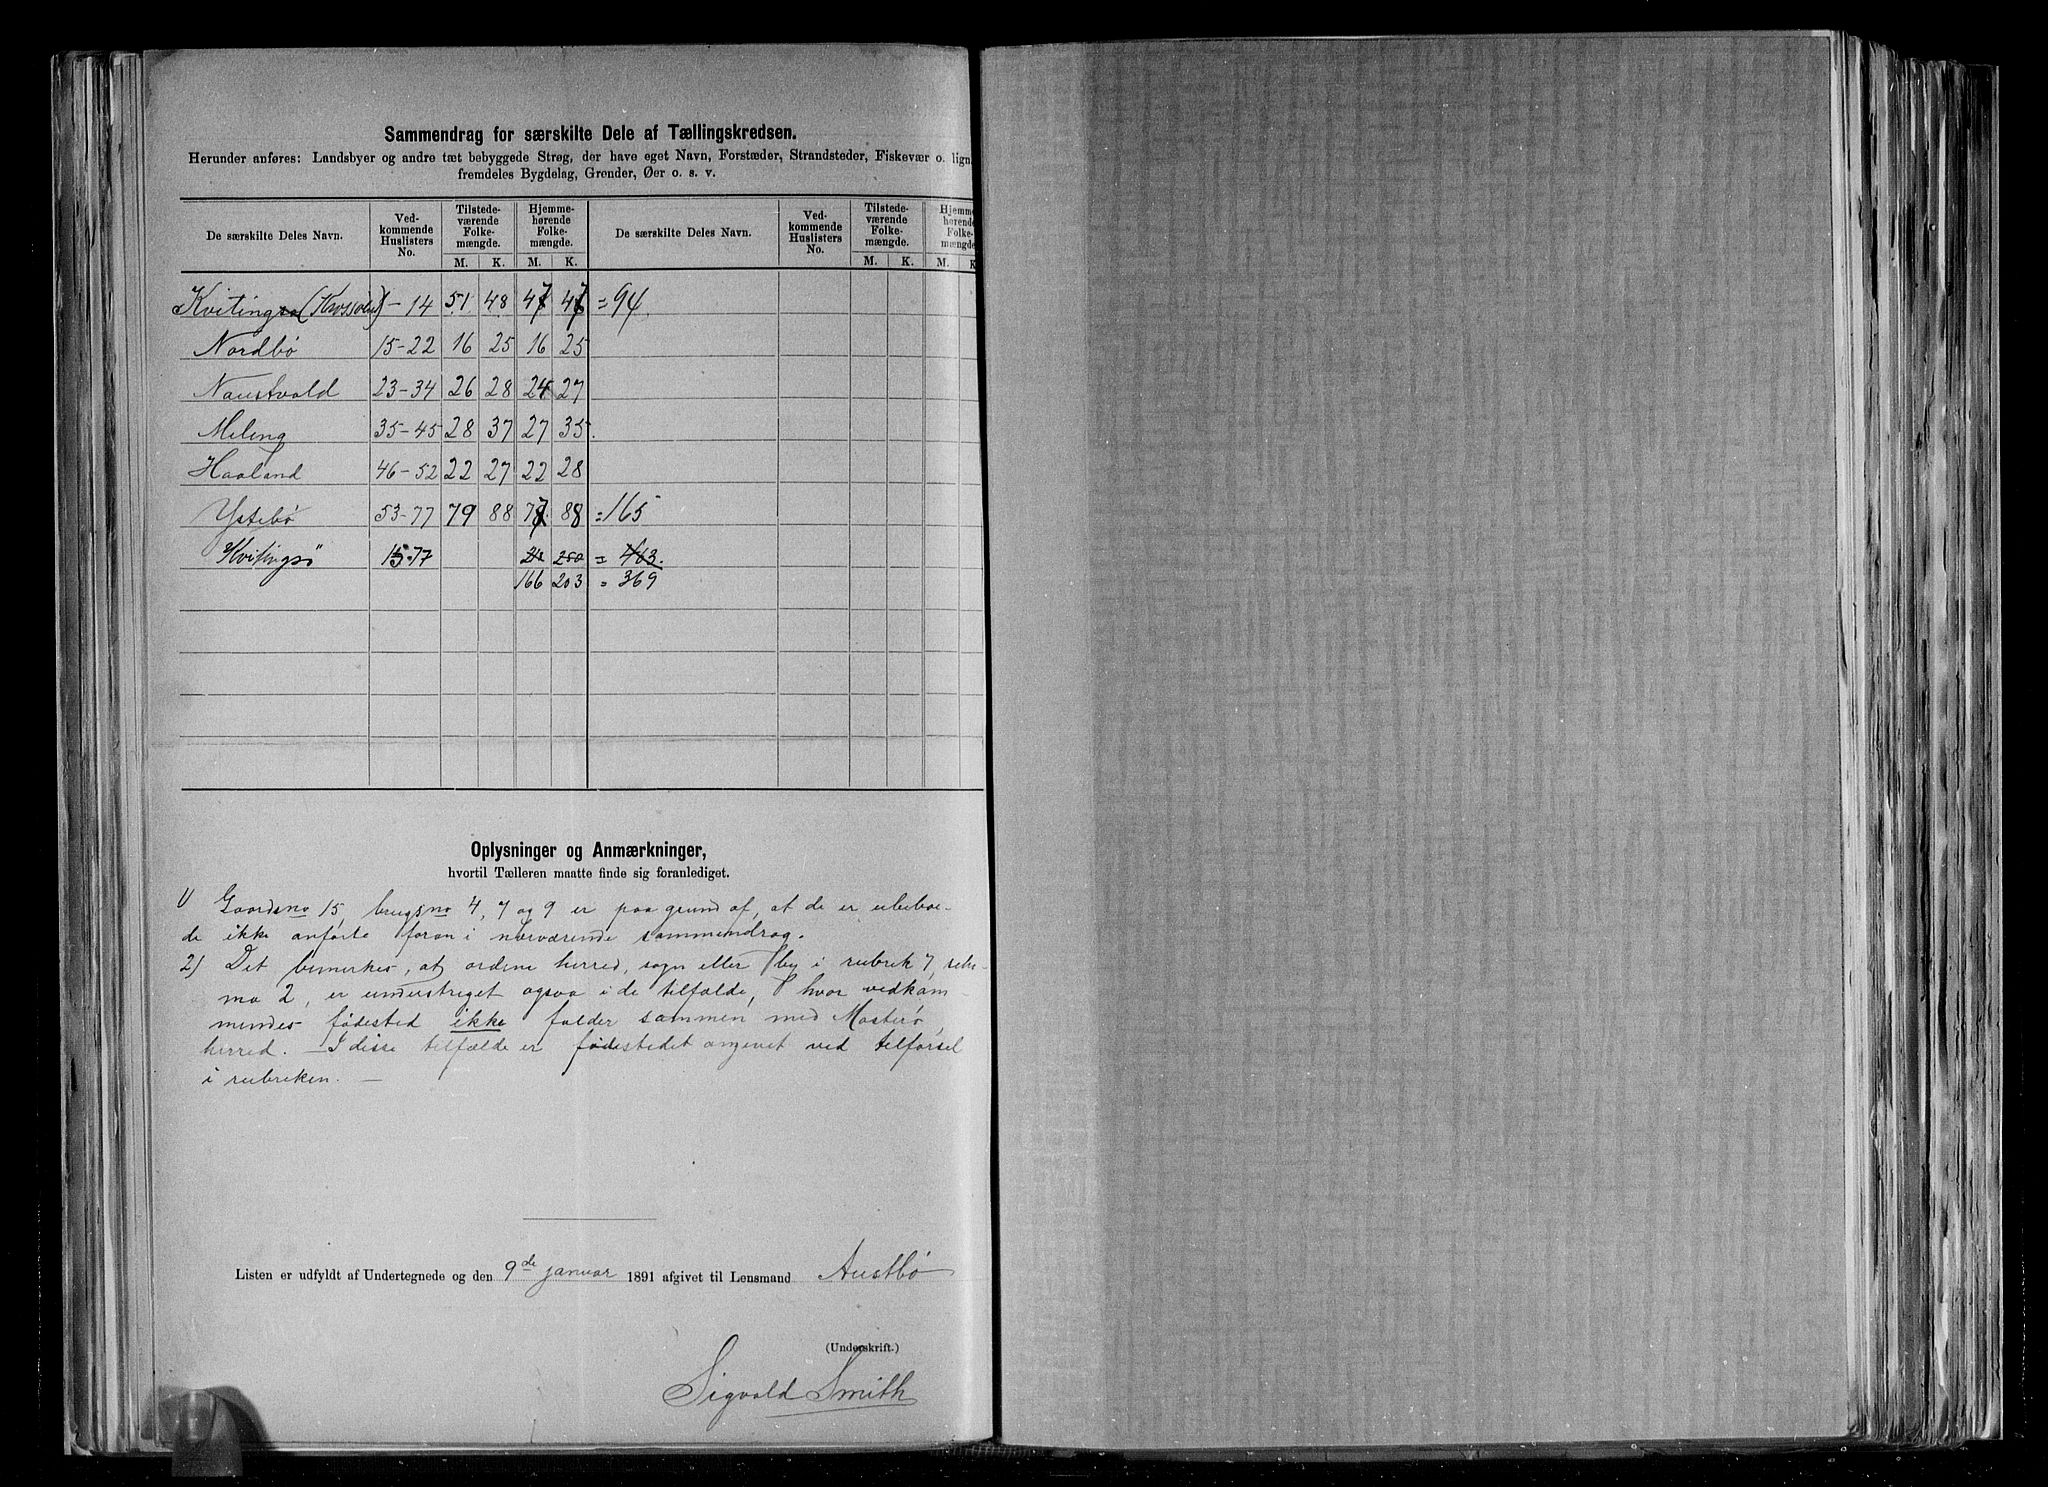 Sammendrag for særskilte Dele af Tællingskredsen.
Herunder anføres: Landsbyer og andre tæt bebyggede Strøg, der have eget Navn, Forstæder, Strandsteder, Fiskevær o. lign.
fremdeles Bygdelag, Grender, Øer o. s. v.
De særskilte Deles Navn. Ved-kommende Huslisters No. Tilstede-værende Folke-mængde. Hjemme-hørende Folke-mængde. De særskilte Deles Navn. Ved-kommende Huslisters No. Tilstede-værende Folke-mængde. Hjemme-hørende Folke-mængde
M. K. M. K. M. K. M. K
Kvitingsø 1-14 51 48 47 47 = 94.
Nordbø 15-22 16 25 16 25
Naustvold 23-34 26 28 24 27
Meling 35-45 28 37 27 35.
Haaland 46-52 22 27 22 28
Ystebø 53-77 79 88 77 88 = 165
Hvitingsö 15-77 250 = 403.
166 203 = 369
Oplysninger og Anmærkninger,
hvortil Tælleren maatte finde sig foranlediget.
1) Gaardsno 15, brugsno 4, 7 og 9 er paa grund af, at de er ubeboe-
de ikke anførte foran i nærværende sammendrag.
2) Det bemerkes, at ordene herred, sogn eller by i rubrik 7, sche-
ma 2, er understreget ogsaa i de tilfælde, hvor vedkom
mendes fødested ikke falder sammen med Mosterø
herred. – I disse tilfælde er fødestedet angivet ved tilførsel
i rubriken. —
Listen er udfyldt af Undertegnede og den 9de januar 1891 afgivet til Lensmand Austbø
(Underskrift.)
Sigvald Smith